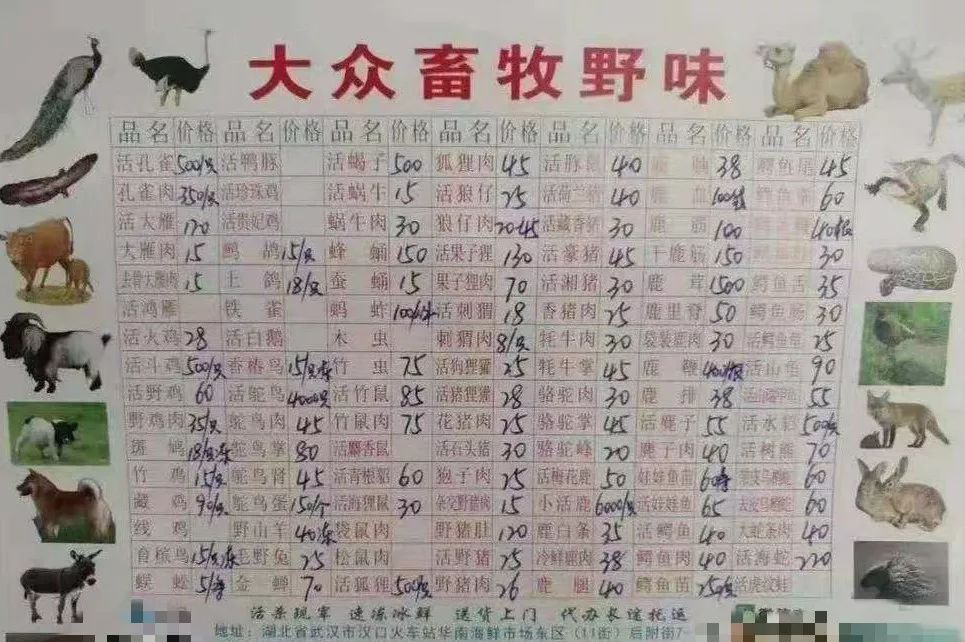 大众畜牧野味
品名 价格 品名 价格 品名 价格 品名 价格 品名 价格 品名 价格 品名 价格
活孔雀 500/只 活鸭豚 活蝎子 500 狐狸肉 45 活豚鼠 40 38 鳄鱼尾 45
孔雀肉 350/只 活珍珠鸡 活蜗牛 15 活狼仔 25 活荷兰猪 40 鹿血 60
活大雁 120 活贵妃鸡 蜗牛肉 30 狼仔肉 20-45 活藏香猪 30 鹿筋 100
大雁肉 15 鹧鸪 15/只 蜂蛹 150 活果子狸 130 活豪猪 45 干鹿筋 150 30
去骨大雁肉 15 土鸽 18/只 蚕蛹 15 果子狸肉 70 活湘猪 30 鹿茸 1500 鳄鱼舌 35
活鸿雁 铁雀 蚂蚱 活刺猬 18 香猪肉 25 鹿里脊 50 鳄鱼肠 30
活火鸡 28 活白鹅 木虫 刺猬肉 8/只 牦牛肉 30 袋装鹿肉 30 活鳄鱼龟 25
活斗鸡 500/只 香椿鸟 竹虫 75 活狗狸獾 25 牦牛掌 45 鹿鞭 活山龟 90
活野鸡 60 活鸵鸟 4000/只 活竹鼠 85 活猪狸獾 28 骆驼肉 30 鹿排 38 55
野鸡肉 35/只 鸵鸟肉 45 竹鼠肉 75 花猪肉 25 骆驼掌 45 活麂子 55 活水貂 500/只
斑鸠 鸵鸟掌 80 活麝香鼠 活石头猪 30 骆驼峰 20 麂子肉 40 活树熊 70
竹鸡 15/只 鸵鸟肾 45 活青根貂 60 狍子肉 25 活梅花鹿 50 娃娃鱼苗 带皮乌梢蛇 60
藏鸡 鸵鸟蛋 150/个 活海狸鼠 30 杂交野猪肉 15 小活鹿 6000/只 活娃娃鱼 65 去皮乌梢蛇 60
线鸡 野山羊 袋鼠肉 野猪肚 120 鹿白条 35 活鳄鱼 40 大蛇条肉 40
百槟鸟 野兔 25 松鼠肉 活野猪 25 冷鲜鹿肉 38 鳄鱼肉 40 活海蛇 220
蜈蚣 金蝉 70 活狐狸 500/只 野猪肉 26 鹿腿 40 鳄鱼苗 活虎纹蛙
活杀现宰 速冻冰鲜 送货上门 代办长途托运
地址：湖北省武汉市汉口火车站华南海鲜市场东区（11街）后附街7-